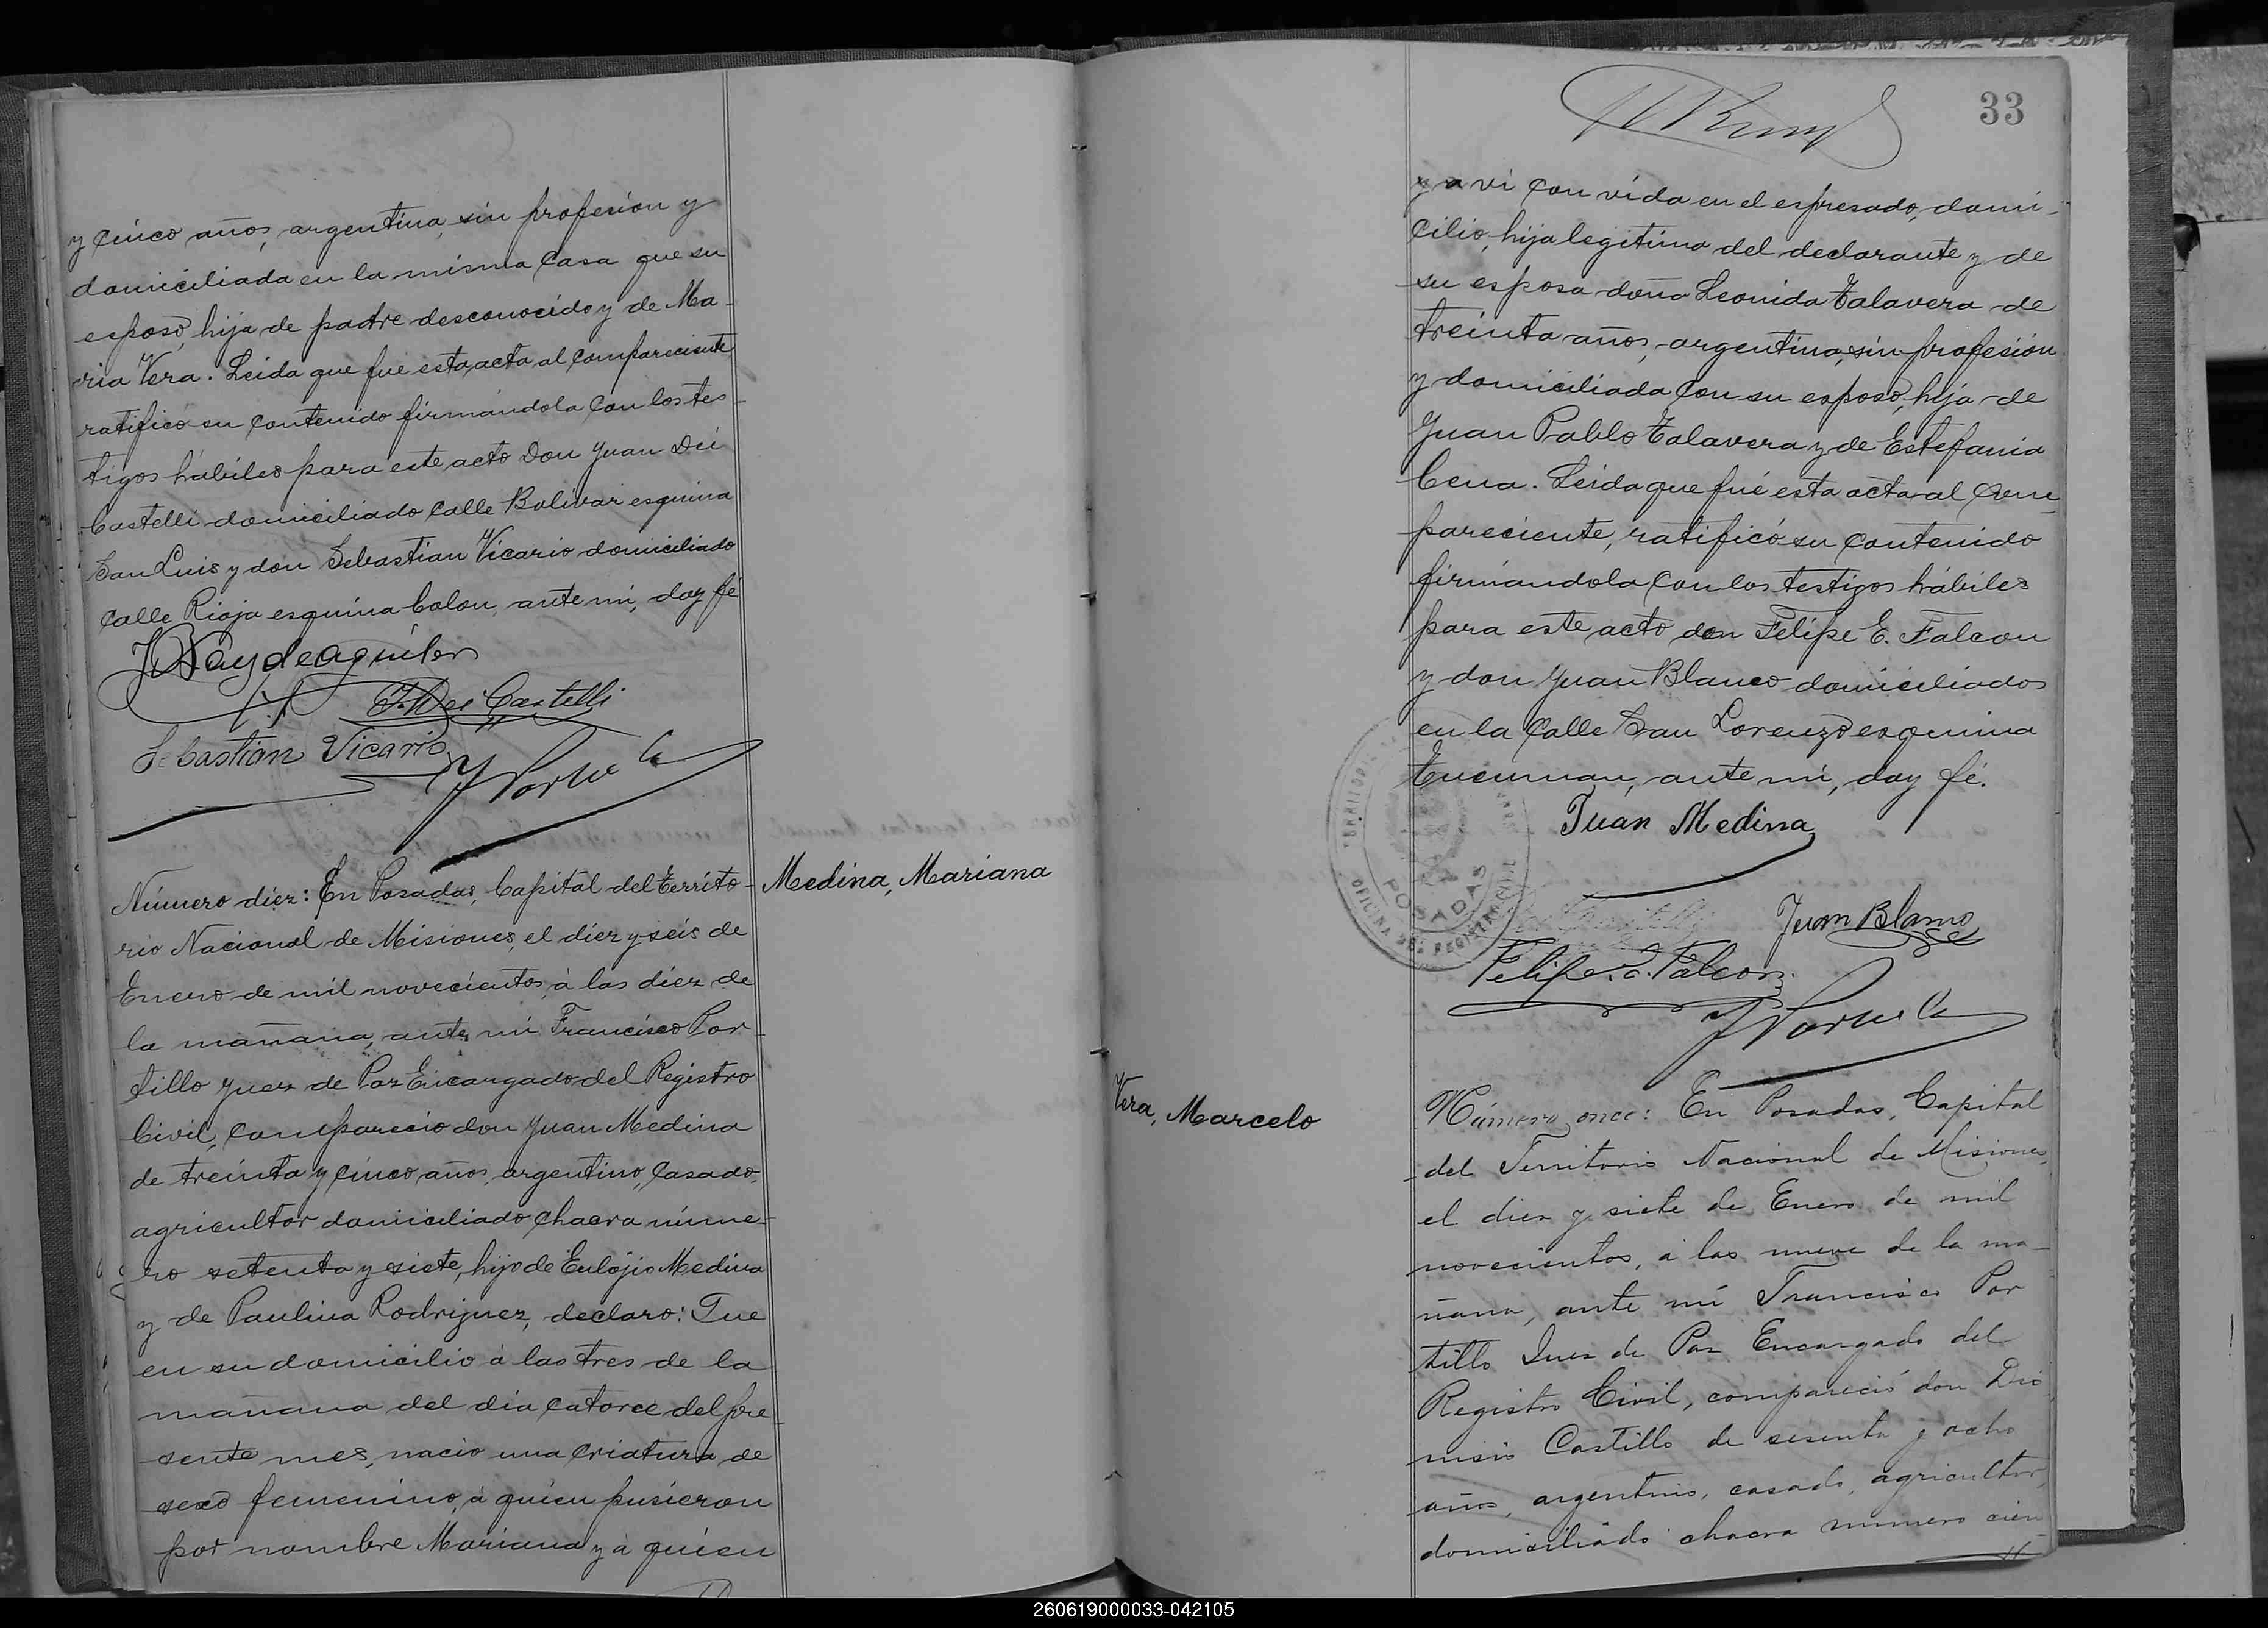 y cinco años, argentina, sin profesión y
domiciliada en la misma casa que su
esposo, hija de padre desconocido y de Ma-
ria Vera. Leida que fué esta acta al compareciente
ratificó su contenido firmándola con los tes-
tigos hábiles para este acto Don Juan Dei
Castelli domiciliado calle Bolivar esquina
San Luis y don Sebastian Vicario domiciliado
calle Rioja esquina Colon, ante mi, doy fé
Castelli
Sebastian Vicario
Número diez: En Posadas, Capital del Territo-
rio Nacional de Misiones, el diez y seis de
Enero de mil novecientos, à las diez de
la mañana, ante mi Francisco Por-
tillo Juez de Paz Encargado del Registro
Civil, compareció don Juan Medina
de treinta y cinco años, argentino, casado,
agricultor domiciliado chacra núme-
ro setenta y siete, hijo de Eulojio Medina
y de Paulina Rodriguez, declaro: Que
en su domicilio à las tres de la
mañana del dia catorce del pre-
sente mes, nacio una criatura de
sexo femenino, à quien pusieron
por nombre Mariana y à quien
Medina, Mariana
33
y a vi con vida en el espresado, domi-
cilio, hija legitima del declarante y de
su esposa doña Leonida Talavera de
treinta años, argentina, sin profesión
y domiciliada con su esposo, hija de
Juan Pablo Talavera y de Estefania
Cena. Leida que fué esta acta al com-
pareciente, ratificó su contenido
firmándola con los testigos hábiles
para este acto don Felipe E. Falcon
y don Juan Blanco domiciliados
en la calle San Lorenzo esquina
Tucuman, ante mi, doy fé.
Juan Medina
Juan Blanco
Felipe E. Falcon
POSADAS
OFICINA DEL REGISTRO CIVIL
Vera, Marcelo
Número once: En Posadas, Capital
del Territorio Nacional de Misiones,
el diez y siete de Enero de mil
novecientos, à las nueve de la ma-
ñana, ante mi Francisco Por
tillo Juez de Paz Encargado del
Registro Civil, compareció don Dio
nisio Castillo de sesenta y ocho
años, argentino, casado, agricultor,
domiciliado chacra numero cien
260619000033-042105